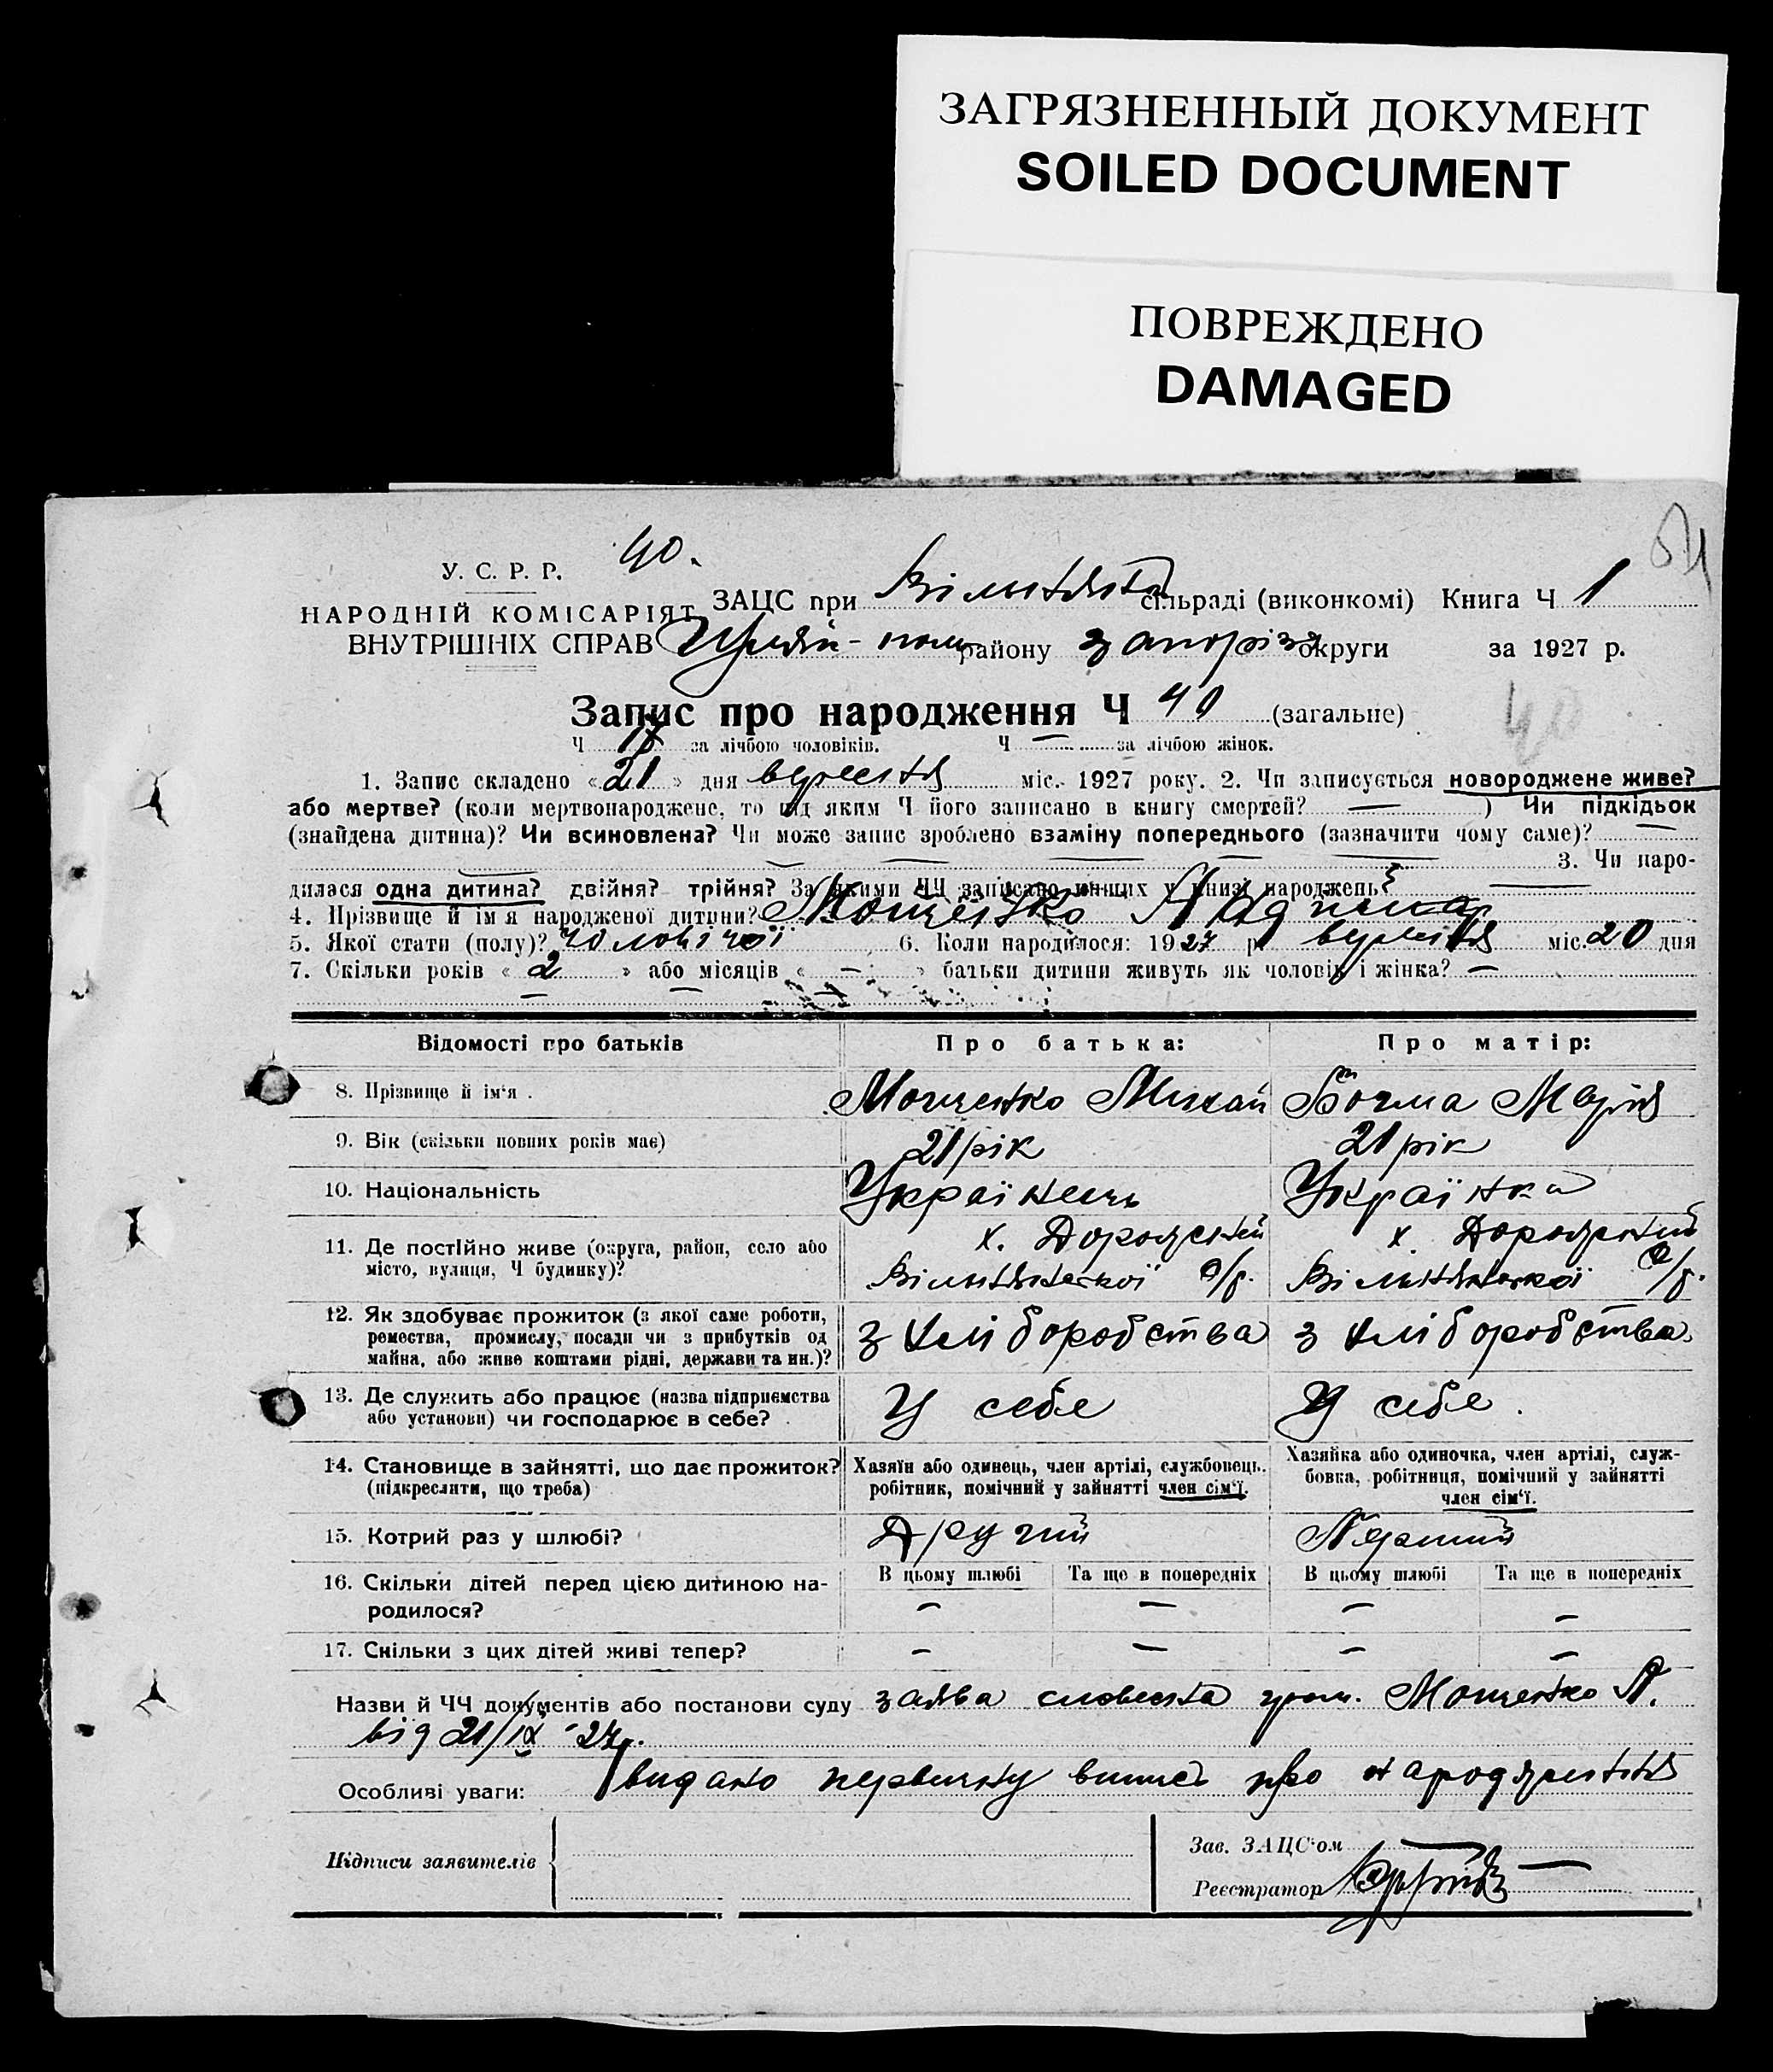 ЗАГРЯЗНЕННЫЙ ДОКУМЕНТ
SOILED DOCUMENT
ПОВРЕЖДЕНО
DAMAGED
40.
У. С. Р. Р.
НАРОДНІЙ КОМІСАРІЯТ
ВНУТРІШНІХ СПРАВ
ЗАЦС при сільраді (виконкомі) Книга Ч 1
району Запоріз округи за 1927 р.
Запис про народження Ч 40 (загальне)
40
Ч за лічбою чоловіків. Ч — за лічбою жінок.
1. Запис складено «21» дня вересня міс. 1927 року. 2. Чи записується новороджене живе?
або мертве? (коли мертвонароджене, то під яким Ч його записано в книгу смертей? — ) Чи підкідьок
(знайдена дитина)? Чи всиновлена? Чи може запис зроблено взаміну попереднього (зазначити чому саме)? —
3. Чи наро-
дилася одна дитина? двійня? трійня? За якими ЧЧ записано инших у книзі народжень? —
4. Прізвище й ім'я народженої дитини? Мощенко
5. Якої стати (полу)? чоловічої 6. Коли народилося: 1927 р. вересня міс. 20 дня
7. Скільки років «2» або місяців « - » батьки дитини живуть як чоловік і жінка? —
Відомості про батьків Про батька: Про матір:
8. Прізвище й ім'я . Мощенко Михай Бочма Марія
9. Вік (скільки повних років має) 21 рік 21 рік
10. Національність Українець Українка
11. Де постійно живе (округа, район, село або
місто, вулиця, Ч будинку)?
х. х.
с/р. с/р.
12. Як здобуває прожиток (з якої саме роботи,
ремества, промислу, посади чи з прибутків од
майна, або живе коштами рідні, держави та ин.)?
з хліборобства з хліборобства
13. Де служить або працює (назва підприємства
або установи) чи господарює в себе?
У себе У себе.
14. Становище в зайнятті, що дає прожиток?
(підкреслити, що треба)
Хазяїн або одинець, член артілі, службовець.
робітник, помічний у зайнятті член сім'ї.
Хазяйка або одиночка, член артілі, служ-
бовка, робітниця, помічний у зайнятті
член сім'ї.
15. Котрий раз у шлюбі? Другий Перший
16. Скільки дітей перед цією дитиною на-
родилося?
В цьому шлюбі Та ще в попередніх В цьому шлюбі Та ще в попередніх
— — — —
17. Скільки з цих дітей живі тепер? — — — —
Назви й ЧЧ документів або постанови суду заява словесна гром. Мощенко
від 21/IX 27р.
Особливі уваги: видано первичну випись про народження
Підписи заявителів
Зав. ЗАЦС'ом
Реєстратор